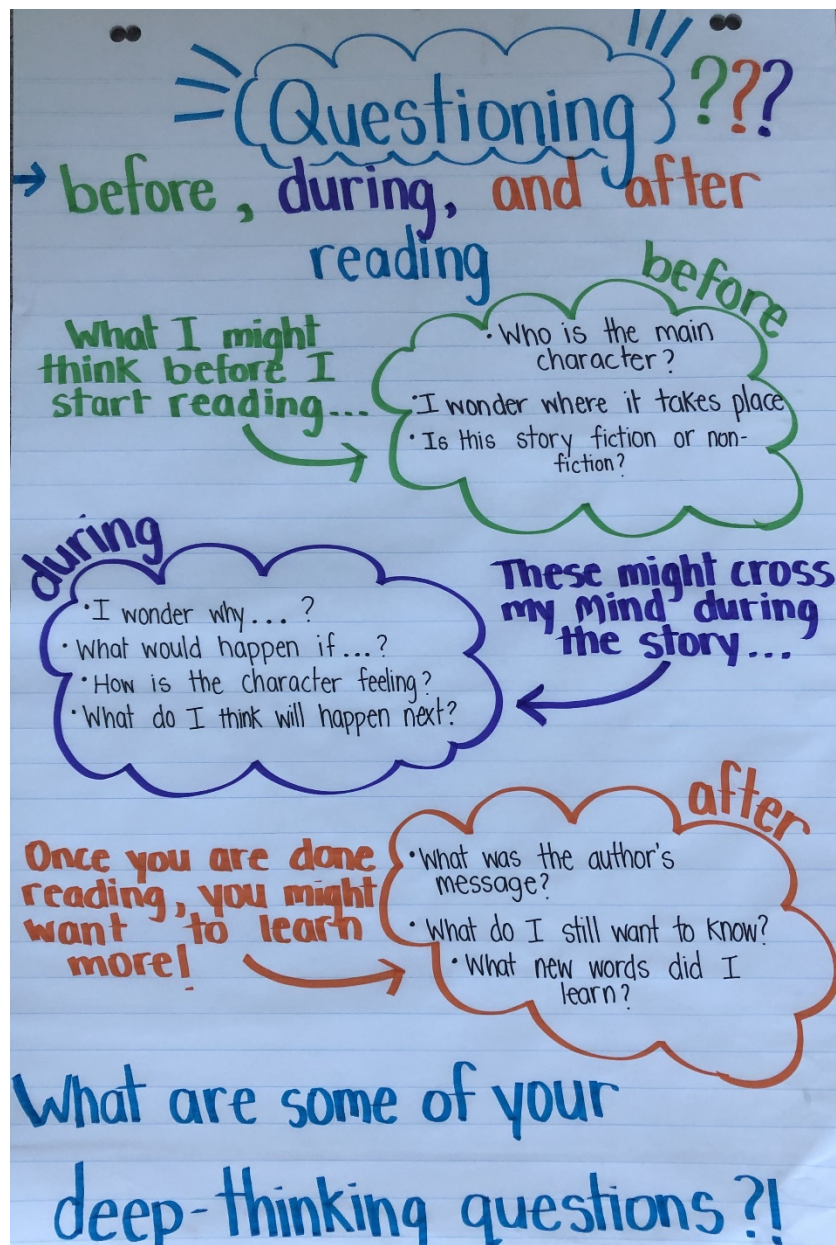 Questioning ???
→ before, during, and after
reading
before
What I might
think before I
start reading...
• Who is the main
character?
• I wonder where it takes place
• Is this story fiction or non-
fiction?
during
• I wonder why... ?
• What would happen if...?
• How is the character feeling?
• What do I think will happen next?
These might cross
my mind during
the story...
after
Once you are done
reading, you might
want to learn
more!
• What was the author's
message?
• What do I still want to know?
• What new words did I
learn?
What are some of your
deep-thinking questions?!